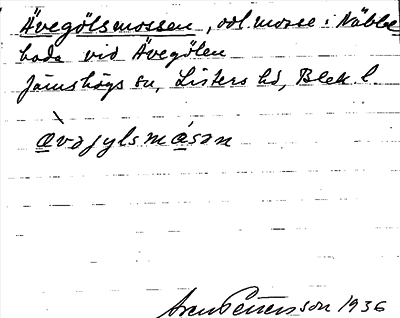 Ävegölsmossen, odl. mosse i Näbbe
boda vid Ävegölen
Jämshögs sn, Listers hd, Blek. l.
ævəjylsmåsən
Sven Petersson 1936